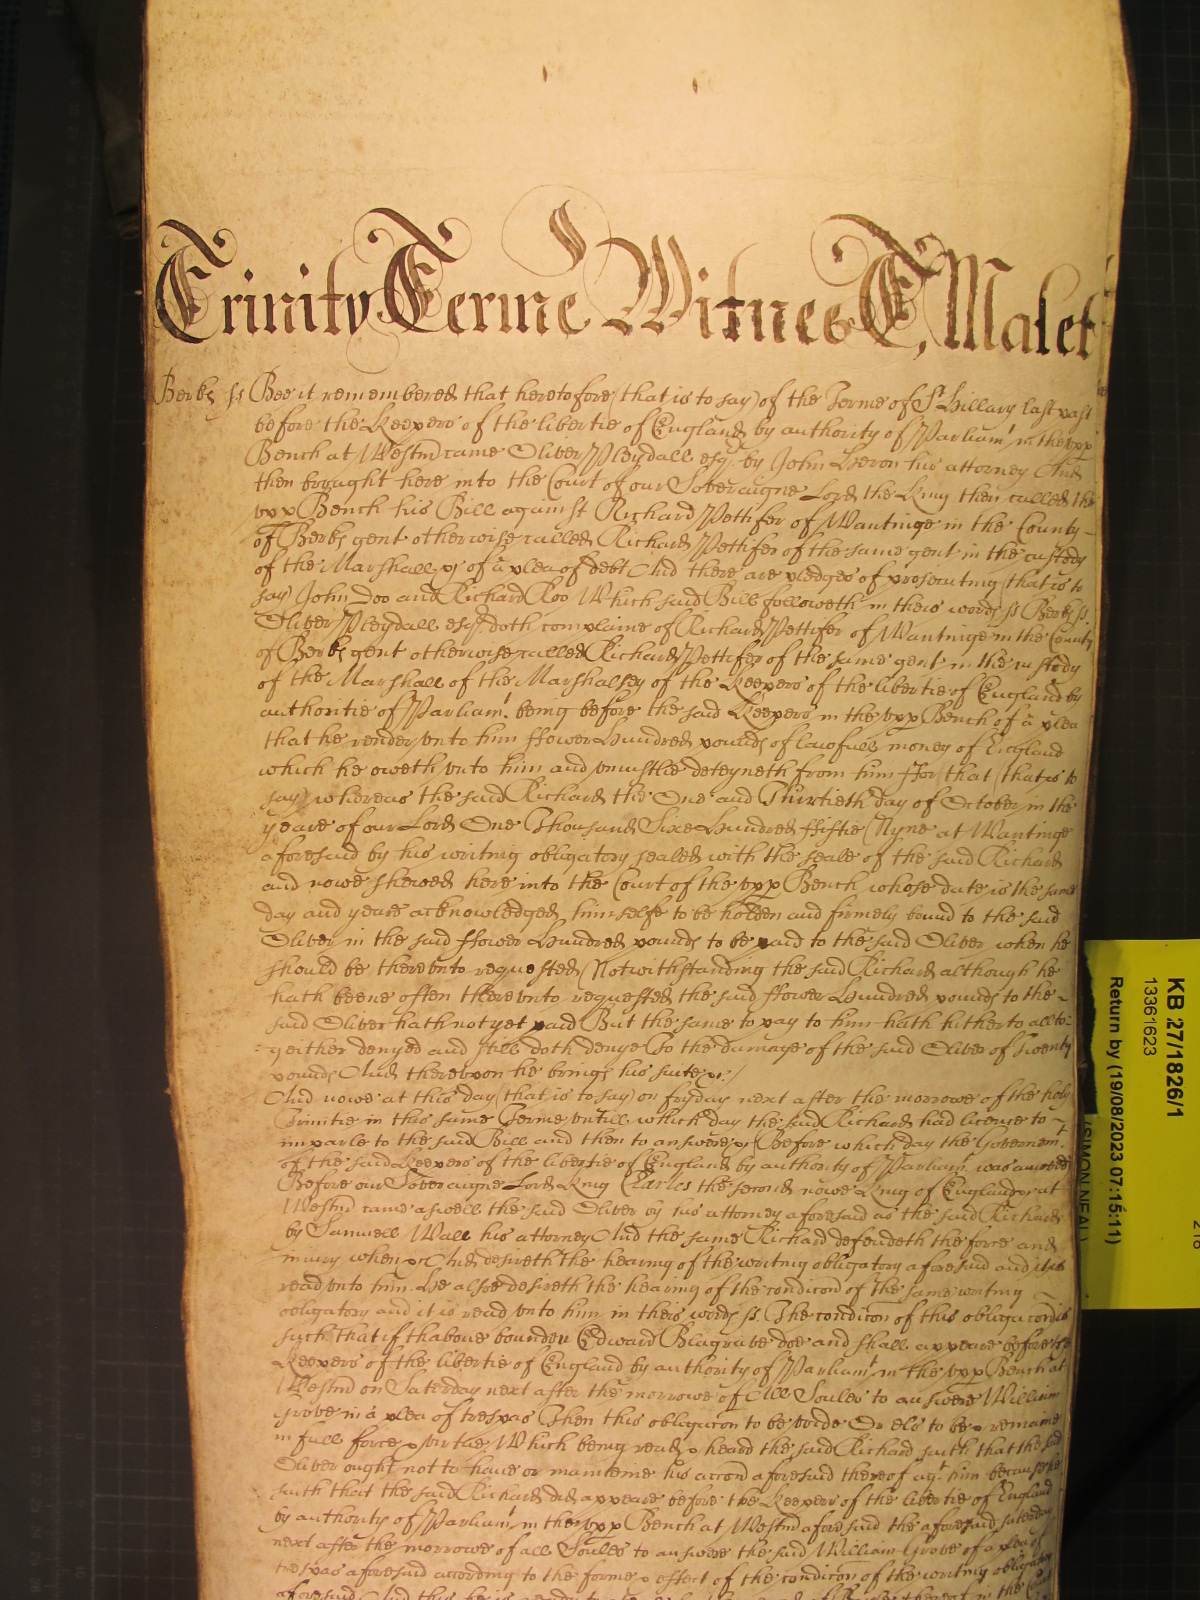 Trinity Terme Witnes T, Malet
Berks ss Bee it remembered that heretofore (that is to say) of the Terme of St Hillary last past
before the Keepers of the libertie of England by authority of Parliamt in the vpp
Bench at Westm came Oliver Pleydall esqr by John Heron his attorney And
then brought here into the Court of our Soveraigne Lord the King then called the
vpp Bench his Bill against Richard Pettifer of Wantinge in the County
of Berks gent otherwise called Richard Pettifer of the same gent in the custody
of the Marshall &c of a plea of debt And there are pledges of prosecuting (that is to
say) John Doo and Richard Roo Which said Bill followeth in theis words ss Berks ss
Oliver Pleydall esqr doth complaine of Richard Pettifer of Wantinge in the County
of Berks gent otherwise called Richard Pettifer of the same gent in the custody
of the Marshall of the Marshalsey of the Keepers of the libertie of England by
authoritie of Parliamt being before the said Keepers in the vpp Bench of a plea
that he render vnto him ffower Hundred pounds of lawfull money of England
which he oweth vnto him and vniustlie deteyneth from him ffor that (that is to
say) whereas the said Richard the One and Thirtieth day of October in the
yeare of our Lord One Thousand Sixe Hundred ffiftie Nyne at Wantinge
aforesaid by his writing obligatory sealed with the seale of the said Richard
and nowe shewed here into the Court of the vpp Bench whose date is the same
day and yeare acknowledged himselfe to be holden and firmely bound to the said
Oliver in the said ffower Hundred pounds to be paid to the said Oliver when he
should be therevnto requested Notwithstanding the said Richard although he
hath beene often therevnto requested the said ffower Hundred pounds to the
said Oliver hath not yet paid But the same to pay to him hath hitherto alto-
geither denyed and still doth denye To the damage of the said Oliver of twenty
pounds And therevpon he brings his suite &c
And nowe at this day (that is to say) on fryday next after the morrowe of the holy
Trinitie in this same Terme vntill which day the said Richard had licence to
imparle to the said Bill and then to answere &c Before which day the Governemt
of the said Keepers of the libertie of England by authority of Parliamt was amoved
Before our Soveraigne Lord King Charles the second nowe King of England &c at
Westm came aswell the said Oliver by his attorney aforesaid as the said Richard
by Samuell Wall his attorney And the same Richard defendeth the force and
iniury when &c And desireth the hearing of the writing obligatory aforesaid and it is
read vnto him. He alsoe desireth the hearing of the condicon of the same writing
obligatory and it is read vnto him in theis words ss. The condicon of this obligacon is
such that if thabove bounden Edward Blagrave doe and shall appeare before the
Keepers of the libertie of England by authority of Parliamt in the vpp Bench at
Westm on Saturday next after the morrowe of All Soules to answere William
Grove in a plea of trespas Then this obligacon to be voide Or els to be & remaine
in full force & virtue Which being read & heard the said Richard saith that the said
Oliver ought not to have or mainteine his accon aforesaid thereof agt him because he
saith that the said Richard did appeare before the Keepers of the libertie of England
by authority of Parliamt in the vpp Bench at Westm aforesaid the aforesaid Saturday
next after the morrowe of all Soules to answere the said William Grove of a plea of
trespas aforesaid according to the forme & effect of the condicon of the writing obligatory
aforesaid And this he is ready to
KB 27/1826/1
13361623
Return by (19/08/2023 07:15:11)
(SIMON NEAL)